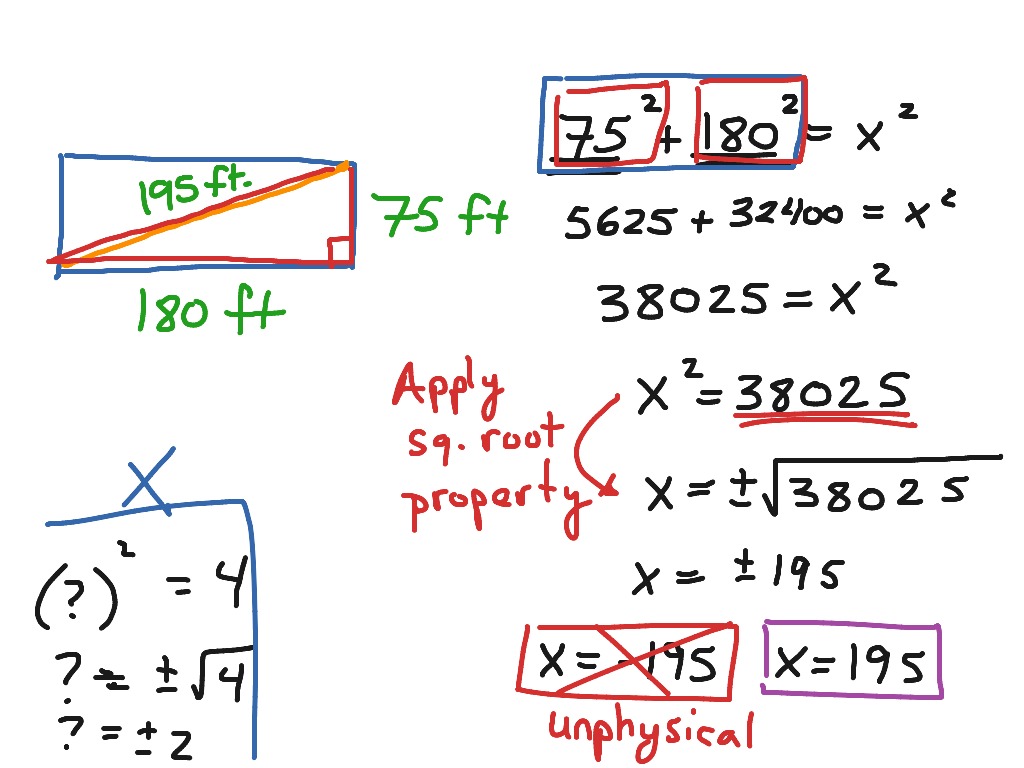 195 ft.
75 ft
180 ft
75² + 180² = x²
5625 + 32400 = x²
38025 = x²
x² = 38025
Apply
sq. root
property
x = ±√38025
x = ±195
x = -195
x = 195
unphysical
x
(?)² = 4
? = ±√4
? = ±2